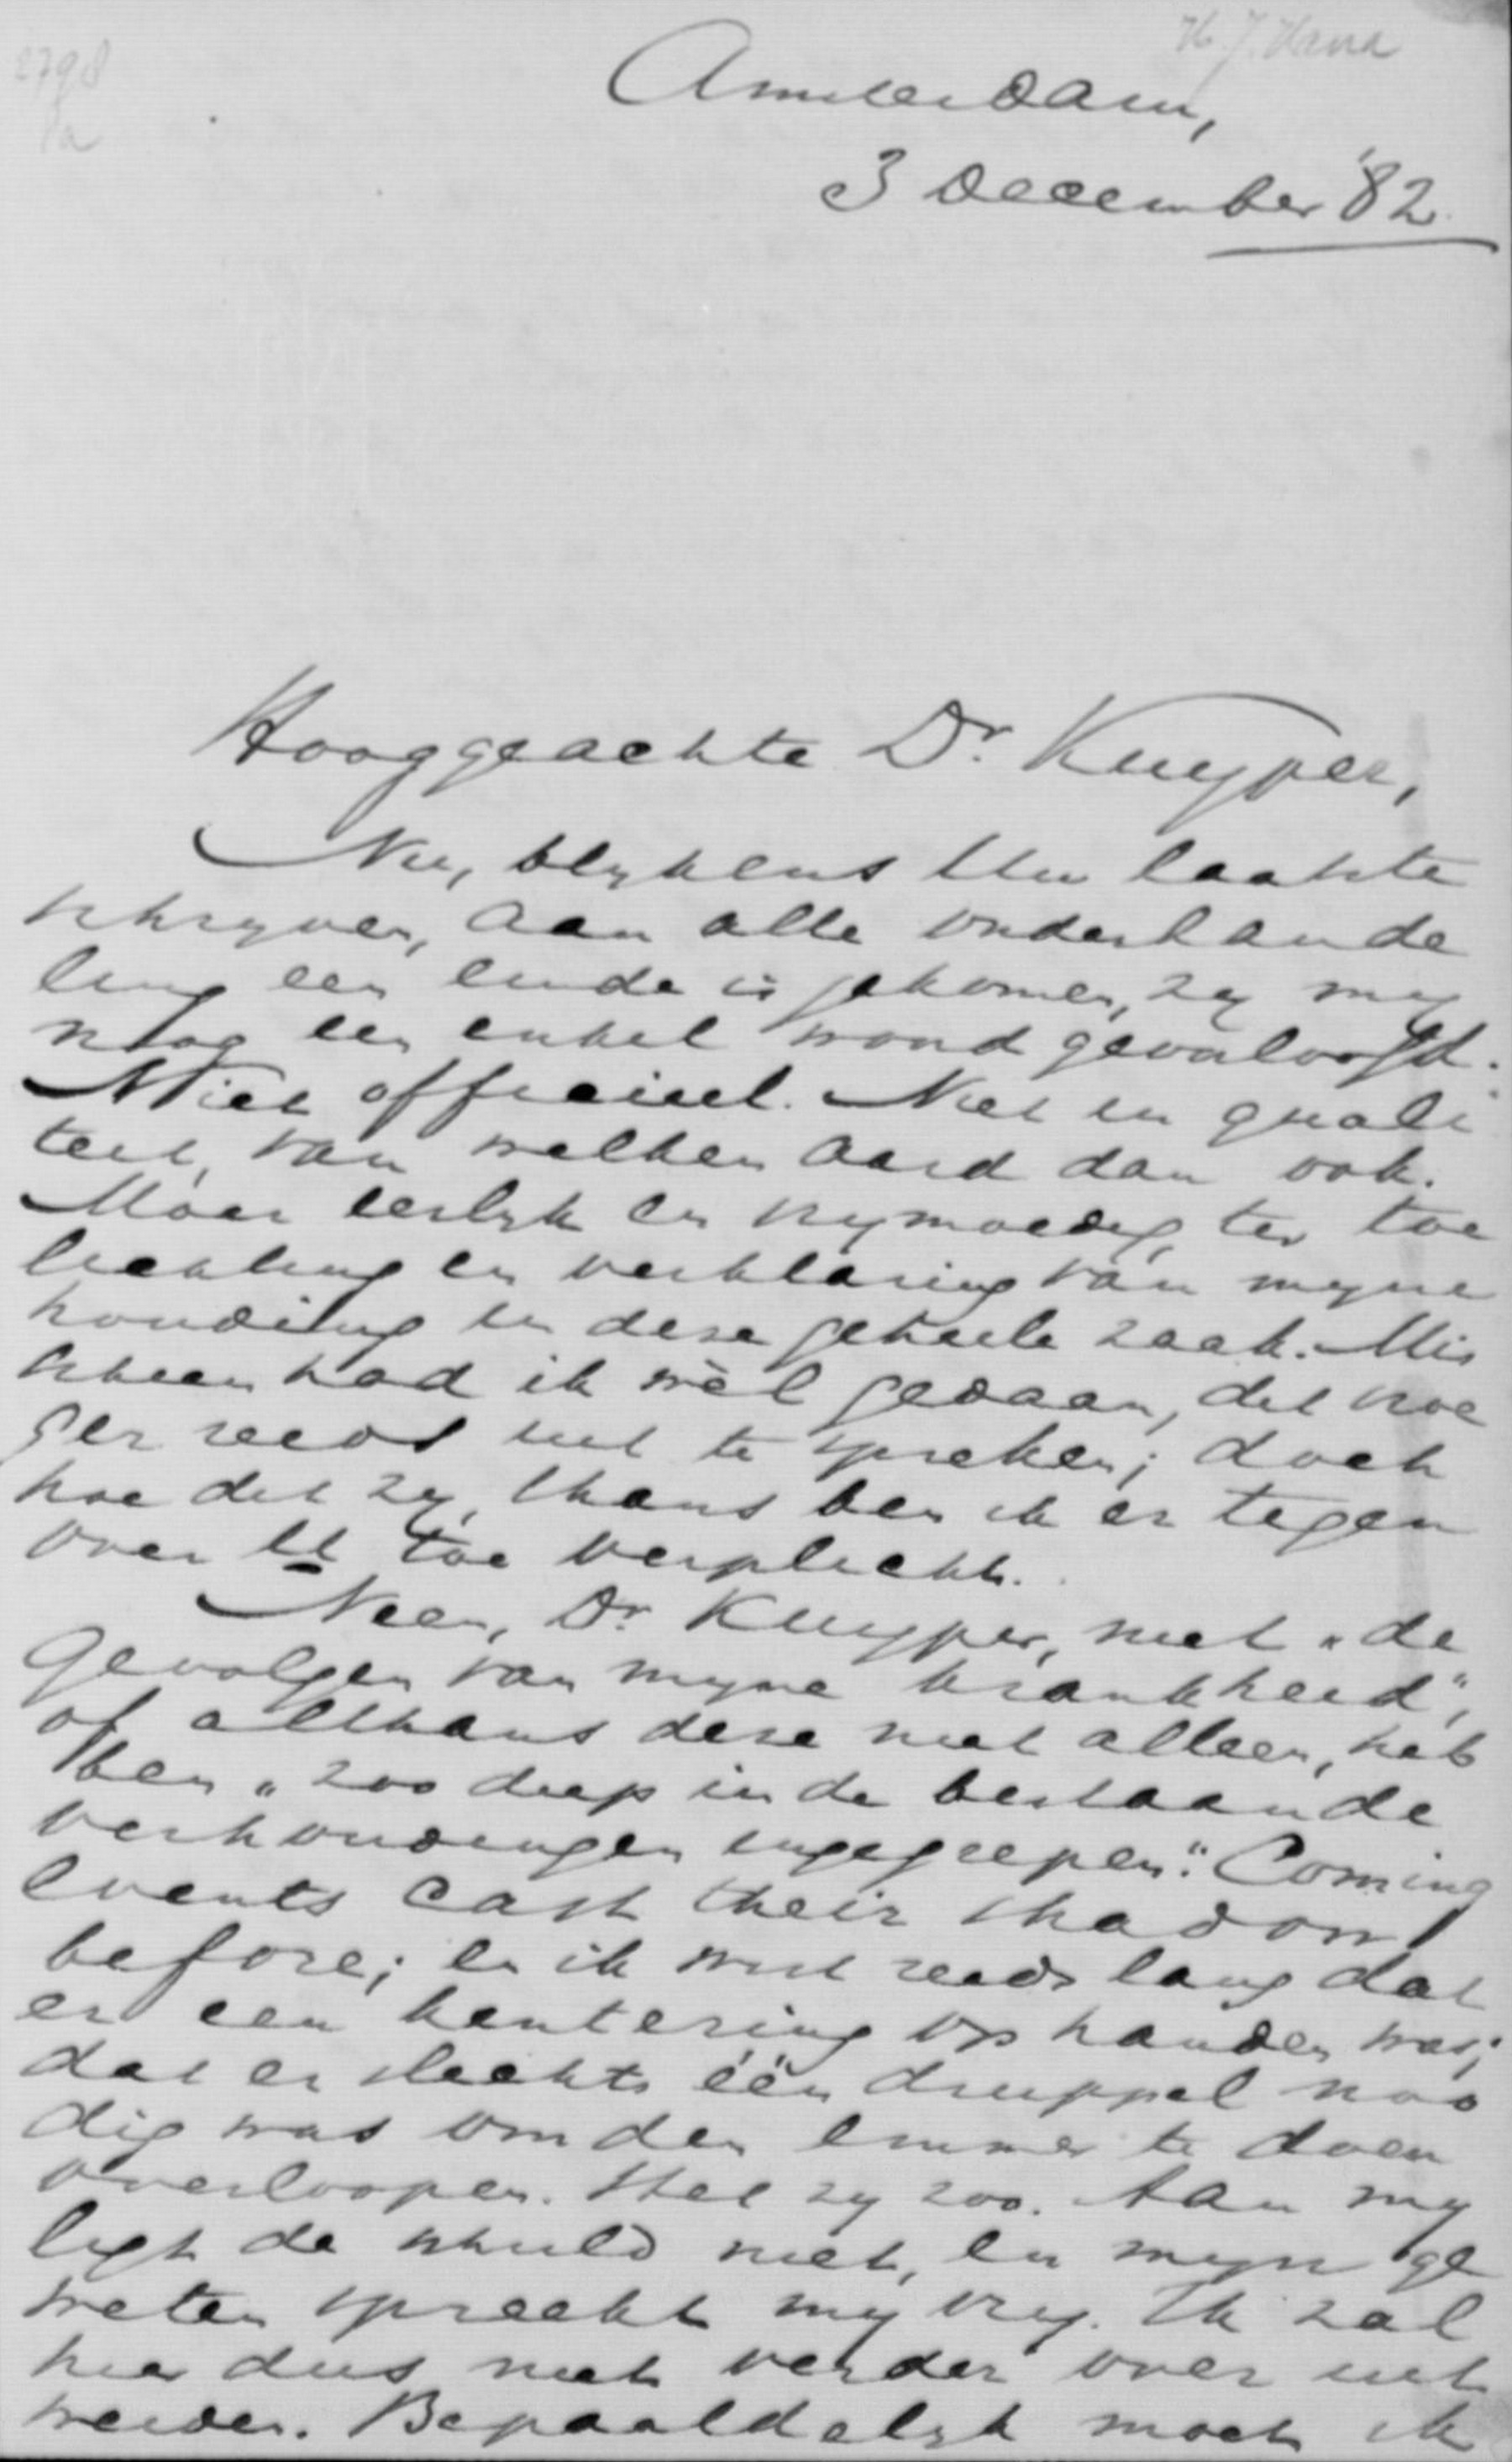 2798
a
Amsterdam,
3 December '82.
Hooggeachte Dr. Kuyper,
Nu, blykens Uw laatste
schryven, aan alle onderhande
ling een einde is gekomen, zy my
nog een enkel woord geoorloofd.
Niet officieel. Niet in quali
teit, van welken aard dan ook.
Maar eerlyk en vrymoedig, ter toe
lichting en verklaring van myne
houding in deze geheele zaak. Mis
schien had ik wèl gedaan, dit vroe
ger reeds uit te spreken; doch
hoe dit zy, thans ben ik er tegen
over U toe verplicht.
Neen, Dr. Kuyper, niet "de
gevolgen van myne krankheid",
of althans deze niet alleen, heb
ben "zoo diep in de bestaande
verhoudingen ingegrepen". Coming
events cast their shadow
before; en ik wist reeds lang dat
er een kentering op handen was;
dat er slechts één druppel noo
dig was om den emmer te doen
overloopen. Het zy zoo. Aan my
ligt de schuld niet, en myn ge
weten spreekt my vry. Ik zal
hier dus niet verder over uit
weiden. Bepaaldelyk moet ik